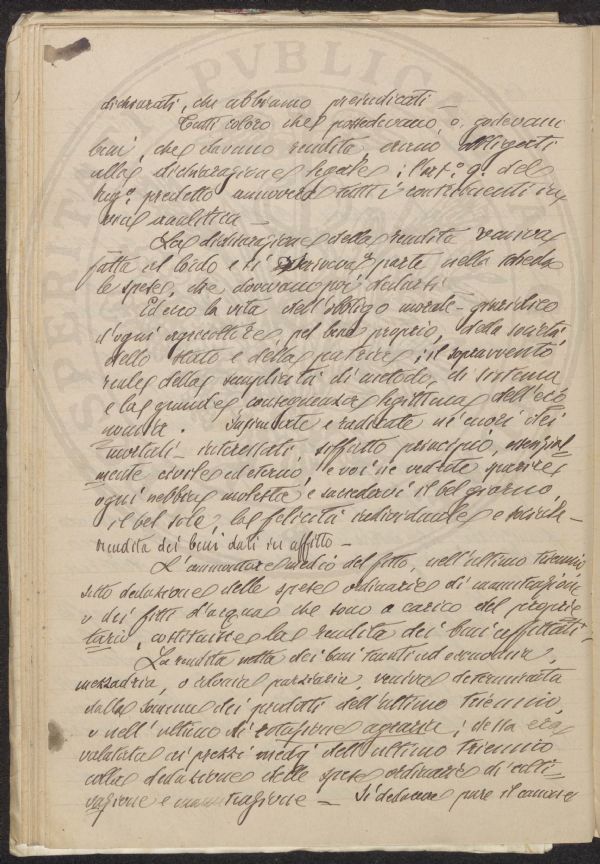 dichiarati, che abbiamo preindicati —
Tutti coloro che possedevano, o godevano
beni, che davano rendita erano obbligati
alla dichiarazione legale; l'art.° 9.° del
Reg.° predetto annovera tutti i contribuenti in
analitica —
La dichiarazione della rendita veniva
fatta al lordo e si scriveva a parte nella scheda
le spese, che dovevano poi dedursi —
Ed ecco la vita dell'obbligo morale-giuridico
d'ogni agricoltore pel bene proprio, della società
dello stato e della patria; il sopravvento
reale della semplicità di metodo, di sistema
e la grande conseguenza legittima dell'eco
nomia. Infiltrate e radicate ne' cuori dei
mortali interessati, siffatto principio, essenzial-
mente civile ed eterno, e voi ne vedrete sparire
ogni nebbia molesta e succedervi il bel giorno,
il bel sole, la felicità individuale e sociale —
rendita dei beni dati in affitto —
L'ammontare medio del fitto, nell'ultimo triennio
sotto deduzione delle spese ordinarie di manutenzione
o dei fitti d'acqua che sono a carico del proprie
tario, costituisce la rendita dei beni affittati —
La rendita netta dei beni tenuti ad economia,
mezzadria, o colonia parziaria, veniva determinata
dalla somma dei prodotti dell'ultimo triennio,
o nell'ultimo di rotazione agraria; della
valutata ai prezzi medj dell'ultimo triennio
colla deduzione delle spese ordinarie di colti-
vazione e manutenzione — Si deducono pure il canone